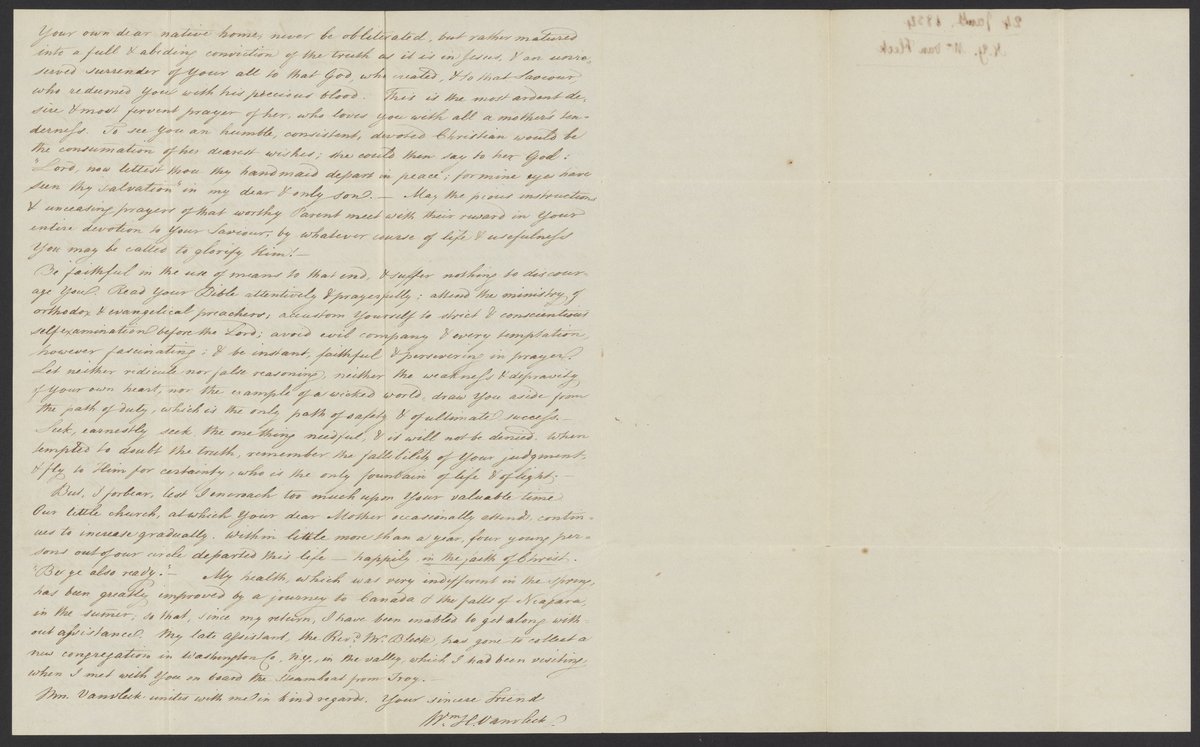 Your own dear native home, never be obliterated, but rather matured
into a full & abiding conviction of the truth as it is in Jesus, & an unre-
served surrender of Your all to that God, who created, & to that Saviour
who redeemed You with his precious blood. This is the most ardent de-
sire & most fervent prayer of her, who loves you with all a mother's ten-
derness. To see You an humble, consistent, devoted Christian would be
the consumation of her dearest wishes; she could then say to her God:
"Lord, now lettest thou thy handmaid depart in peace; for mine eyes have
seen thy salvation" in my dear & only son. — May the pious instructions
& unceasing prayers of that worthy Parent meet with their reward in Your
entire devotion to Your Saviour, by whatever course of life & usefulness
You may be called to glorify Him! —
Be faithful in the use of means to that end, & suffer nothing to discour-
age You. Read Your Bible attentively & prayerfully; attend the ministry of
orthodox & evangelical preachers; accustom Yourself to strict & conscientious
selfexamination before the Lord; avoid evil company & every temptation,
however fascinating; & be instant, faithful & persevering in prayer.
Let neither ridicule nor false reasoning, neither the weakness & depravity
of Your own heart, nor the example of a wicked world, draw You aside from
the path of duty, which is the only path of safety & of ultimate success. —
Seek, earnestly seek the one thing needful, & it will not be denied. When
tempted to doubt the truth, remember the fallibility of Your judgment,
& fly to Him for certainty, who is the only fountain of life & of light. —
But, I forbear, lest I encroach too much upon Your valuable time.
Our little church, at which Your dear Mother occasionally attends, contin-
ues to increase gradually. Within little more than a year, four young per-
sons out of our circle departed this life — happily in the faith of Christ.
"Be ye also ready." — My health, which was very indifferent in the spring,
has been greatly improved by a journey to Canada & the falls of Niagara,
in the summer; so that, since my return, I have been enabled to get along with-
out assistance. My late assistant, the Revd. Mr. Bleck has gone to collect a
new congregation in Washington Co, N.Y., in the valley, which I had been visiting,
when I met with You on board the Steamboat from Troy. —
Mrs. Vanvleck unites with me in kind regard. Your sincere Friend
Wm. H. Vanvleck.
24 Jany. 1834
N.Y. Mr Van Vleck